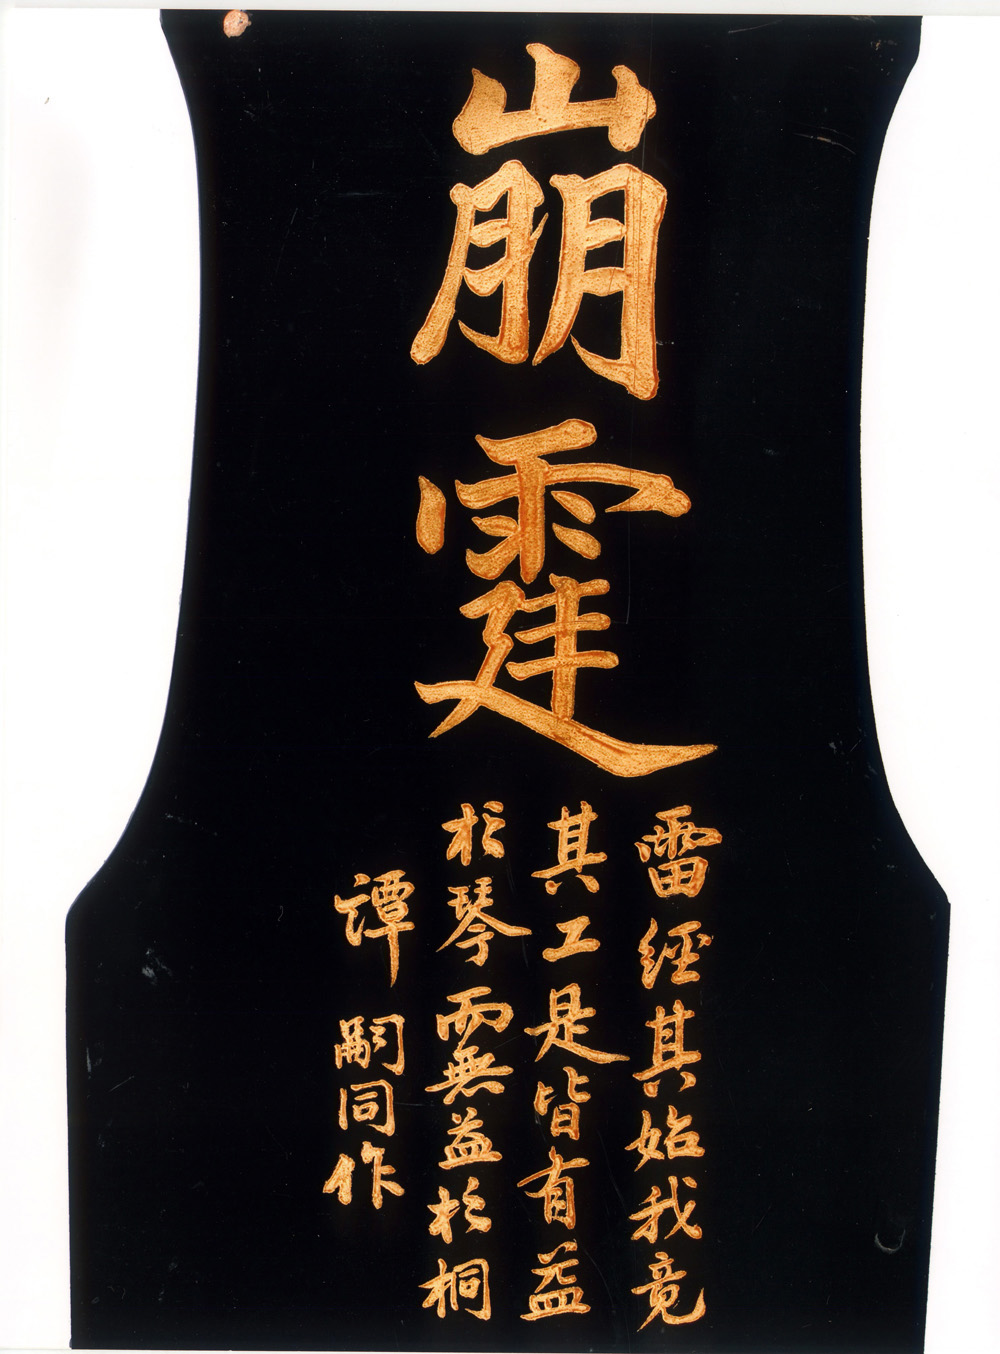 崩霆
雷經其始我竟
其工是皆有益
於琴而無益於桐
譚嗣同作